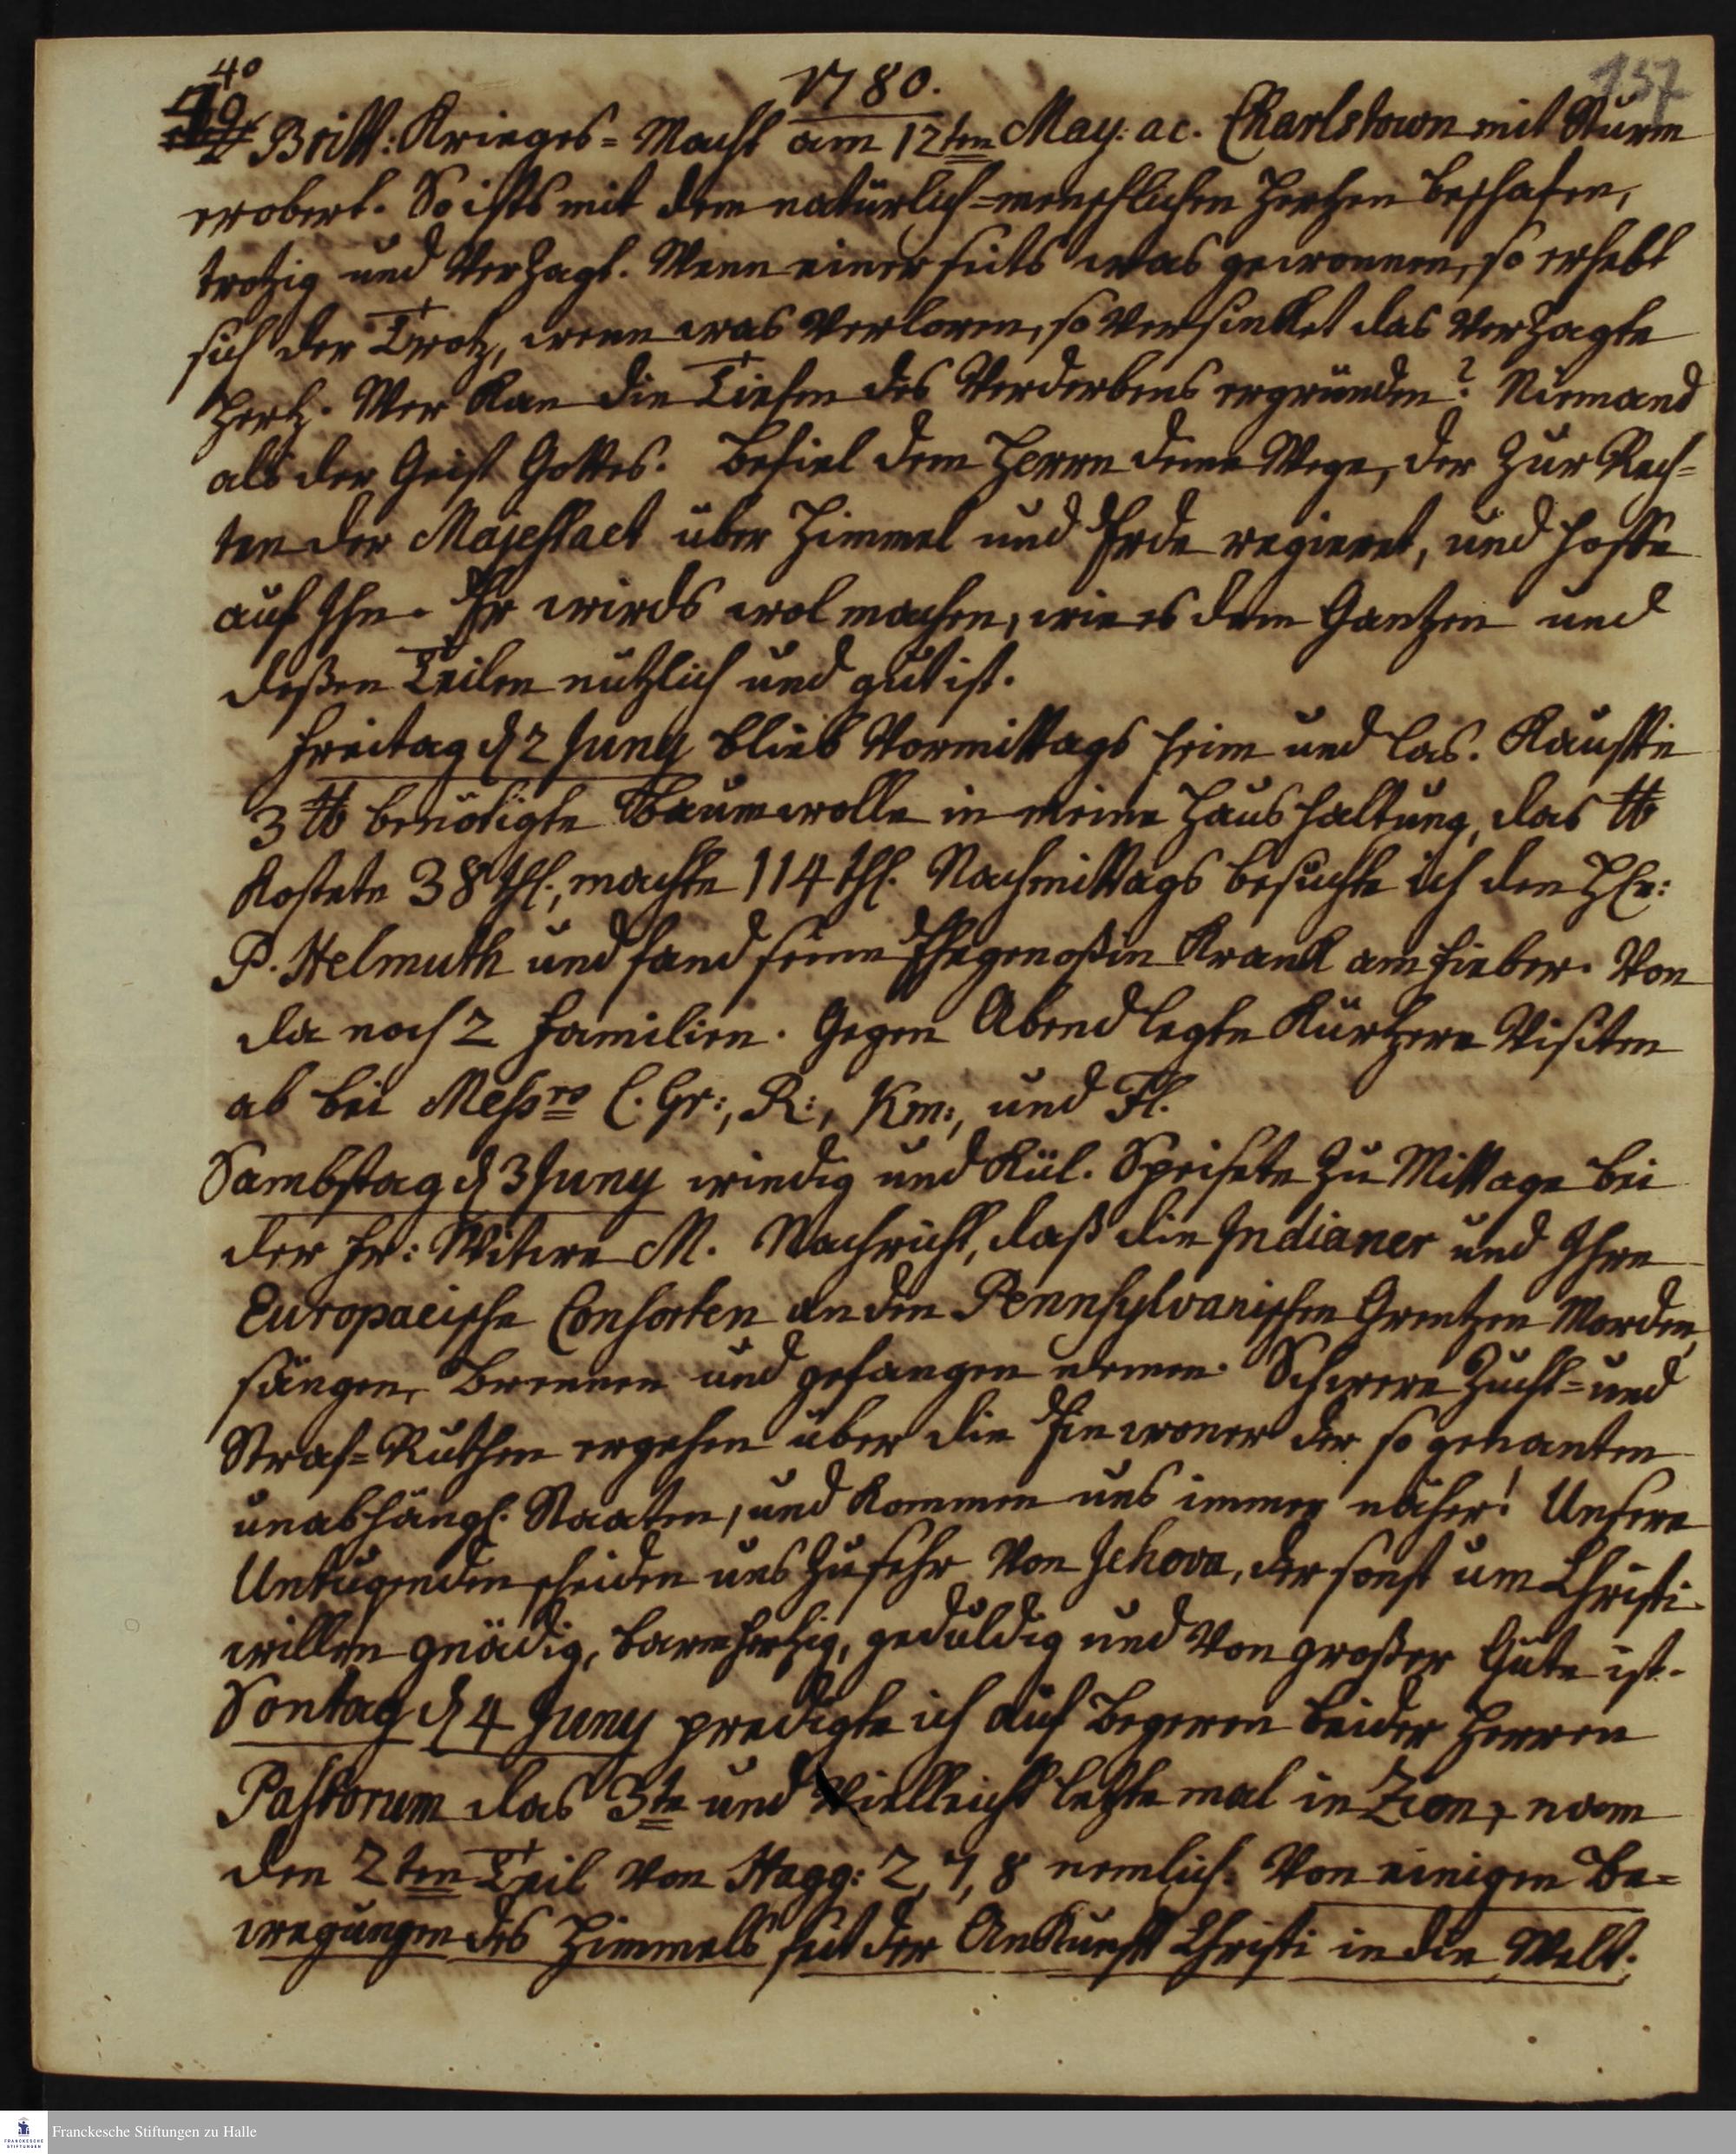 40
1780.
157
Britt: Krieges-Macht am 12ten May. ac. Charlstown mit Sturm
erobert. So ists mit dem natürlich-menschlichen Hertzen beschafen,
trotzig und verzagt. Wenn einerseits was gewonnen, so erhebt
sich der Trotz, wenn was verloren, so versinket das verzagte
Hertz. Wer kan die Tiefen des Verderbens ergründen? Niemand
als der Geist Gottes. Befiel dem Herrn deine Wege, der zur Rech-
ten der Majestaet über Himmel und Erde regieret, und hoffe
auf Ihn. Er wirds wol machen, wie es dem Gantzen und
deßen Teilen nützlich und gut ist.
Freitag d 2 Juny blieb Vormittags heim und las. Kauffte
3 ℔ benötigte Baumwolle in meine Haushaltung, das ℔
kostete 38 thl., machte 114 thl. Nachmittags besuchte ich den HEn:
P. Helmuth und fand seine Ehegenoßin kranck am Fieber. Von
da noch 2 Familien. Gegen Abend legte kürtzere Visiten
ab bei Messrs C. Gr:, R:, Km:, und Fl.
Sambstag d 3 Juny windig und kül. Speisete zu Mittage bei
der Fr: Witwe M. Nachricht, daß die Indianer und Ihre
Europaeische Consorten an den Pennsylvanischen Grentzen Morden,
sängen, Brennen und gefangen nemen. Schwere Zucht- und
Straf-Ruthen ergehen über die Einwoner der so genanten
unabhängl. Staaten, und kommen uns immer näher! Unsere
Untugenden scheiden uns zu sehr von Jehova, der sonst um Christi
willen gnädig, barmhertzig, geduldig und von großer Güte ist.
Sontag d 4 Juny predigte ich auf Begeren beider Herren
Pastorum das 3te und vielleicht letzte mal in Zion, nam
den 2ten Teil von Hagg: 2, 7, 8 nemlich: Von einigen Be-
wegungen des Himmels seit der Ankunft Christi in die Welt;
Franckesche Stiftungen zu Halle